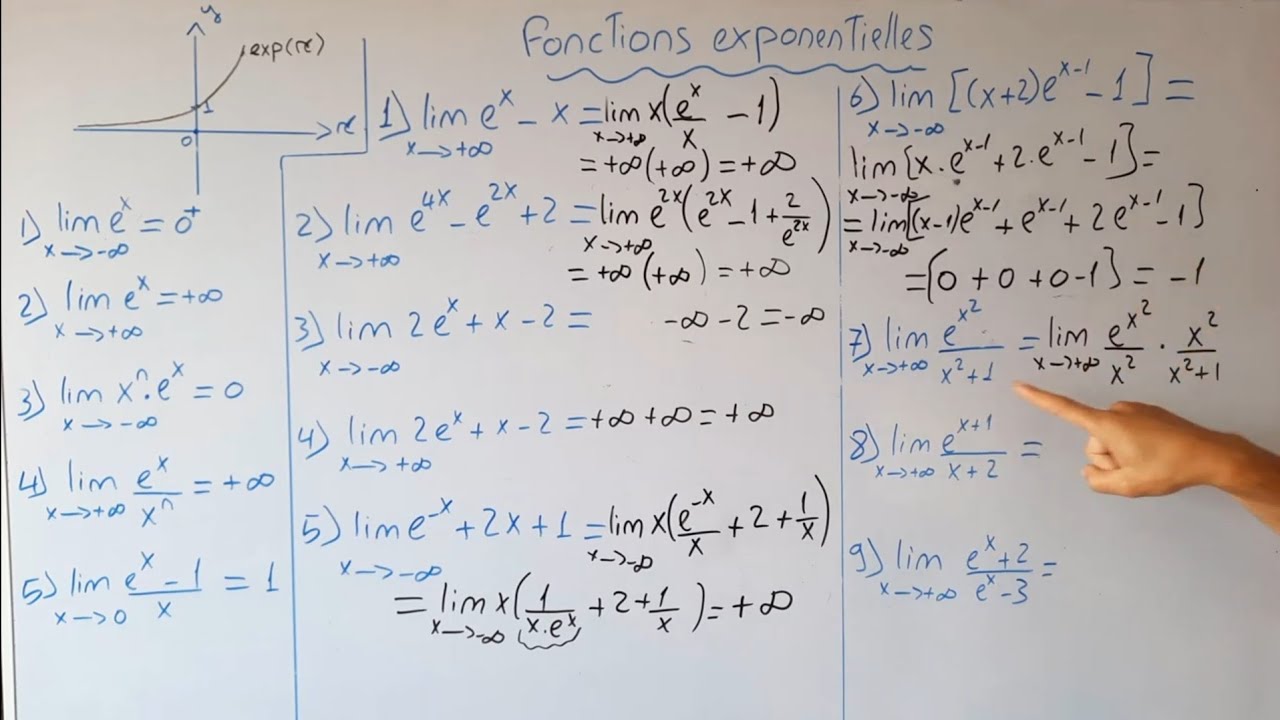 Fonctions exponentielles
y
exp(x)
1
0
x
1) lim e^x = 0^+
x → -∞
2) lim e^x = +∞
x → +∞
3) lim x^n . e^x = 0
x → -∞
4) lim e^x / x^n = +∞
x → +∞
5) lim (e^x - 1) / x = 1
x → 0
1) lim e^x - x = lim x(e^x / x - 1)
x → +∞ x → +∞
= +∞(+∞) = +∞
2) lim e^4x - e^2x + 2 = lim e^2x(e^2x - 1 + 2 / e^2x)
x → +∞ x → +∞
= +∞(+∞) = +∞
3) lim 2e^x + x - 2 = -∞ - 2 = -∞
x → -∞
4) lim 2e^x + x - 2 = +∞ + ∞ = +∞
x → +∞
5) lim e^-x + 2x + 1 = lim x(e^-x / x + 2 + 1 / x)
x → -∞ x → -∞
= lim x(1 / x.e^x + 2 + 1 / x) = +∞
x → -∞
6) lim [(x+2)e^x-1 - 1] =
x → -∞
lim [x.e^x-1 + 2.e^x-1 - 1] =
x → -∞
= lim [(x-1)e^x-1 + e^x-1 + 2e^x-1 - 1]
x → -∞
= [0 + 0 + 0 - 1] = -1
7) lim e^x^2 / x^2+1 = lim e^x^2 / x^2 . x^2 / x^2+1
x → +∞ x → +∞
8) lim e^x+1 / x+2 =
x → +∞
9) lim e^x+2 / e^x-3 =
x → +∞